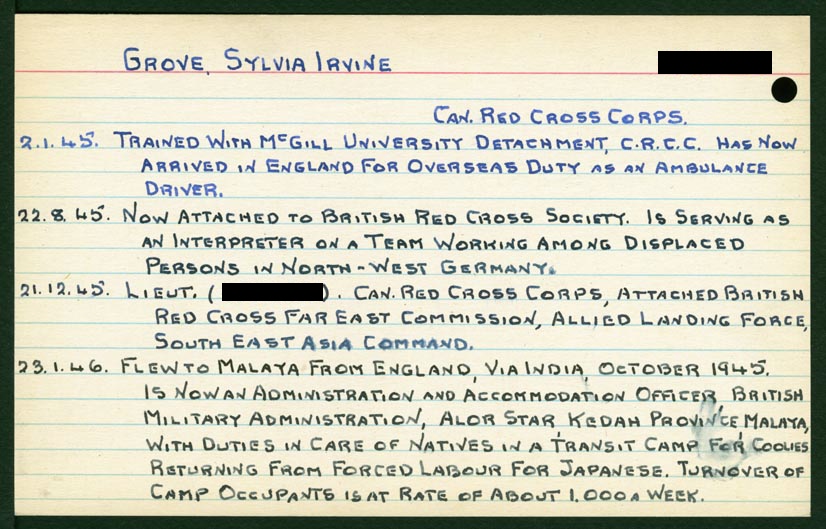 GROVE, SYLVIA IRVINE
CAN. RED CROSS CORPS.
2.1.45. TRAINED WITH McGILL UNIVERSITY DETACHMENT, C.R.C.C. HAS NOW
ARRIVED IN ENGLAND FOR OVERSEAS DUTY AS AN AMBULANCE
DRIVER.
22.8.45. NOW ATTACHED TO BRITISH RED CROSS SOCIETY. IS SERVING AS
AN INTERPRETER ON A TEAM WORKING AMONG DISPLACED
PERSONS IN NORTH-WEST GERMANY.
21.12.45. LIEUT. ( ). CAN. RED CROSS CORPS, ATTACHED BRITISH
RED CROSS FAR EAST COMMISSION, ALLIED LANDING FORCE,
SOUTH EAST ASIA COMMAND.
23.1.46. FLEW TO MALAYA FROM ENGLAND, VIA INDIA, OCTOBER 1945.
IS NOW AN ADMINISTRATION AND ACCOMMODATION OFFICER, BRITISH
MILITARY ADMINISTRATION, ALOR STAR, KEDAH PROVINCE MALAYA,
WITH DUTIES IN CARE OF NATIVES IN A TRANSIT CAMP FOR COOLIES
RETURNING FROM FORCED LABOUR FOR JAPANESE. TURNOVER OF
CAMP OCCUPANTS IS AT RATE OF ABOUT 1,000 A WEEK.